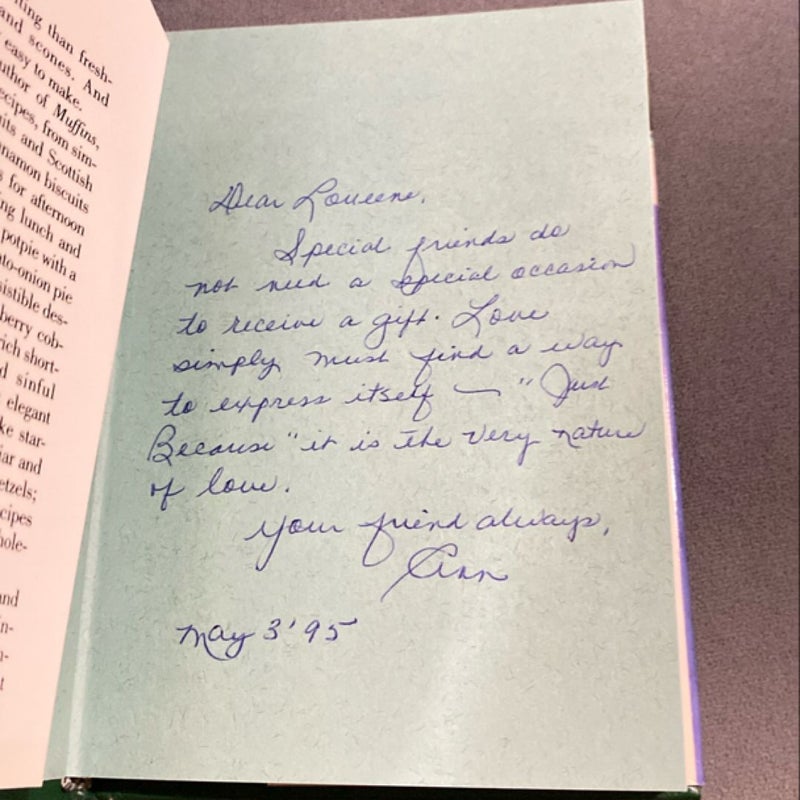 ting than fresh-
and scones. And
easy to make.
uthor of Muffins,
ecipes, from sim-
its and Scottish
namon biscuits
s for afternoon
ng lunch and
potpie with a
to-onion pie
sistible des-
berry cob-
rich short-
d sinful
elegant
ke star-
iar and
etzels;
cipes
hole-
and
in-
Dear Loueene,
Special friends do
not need a special occasion
to receive a gift. Love
simply must find a way
to express itself — "Just
Because" it is the very nature
of love.
Your friend always,
Ann
May 3'95